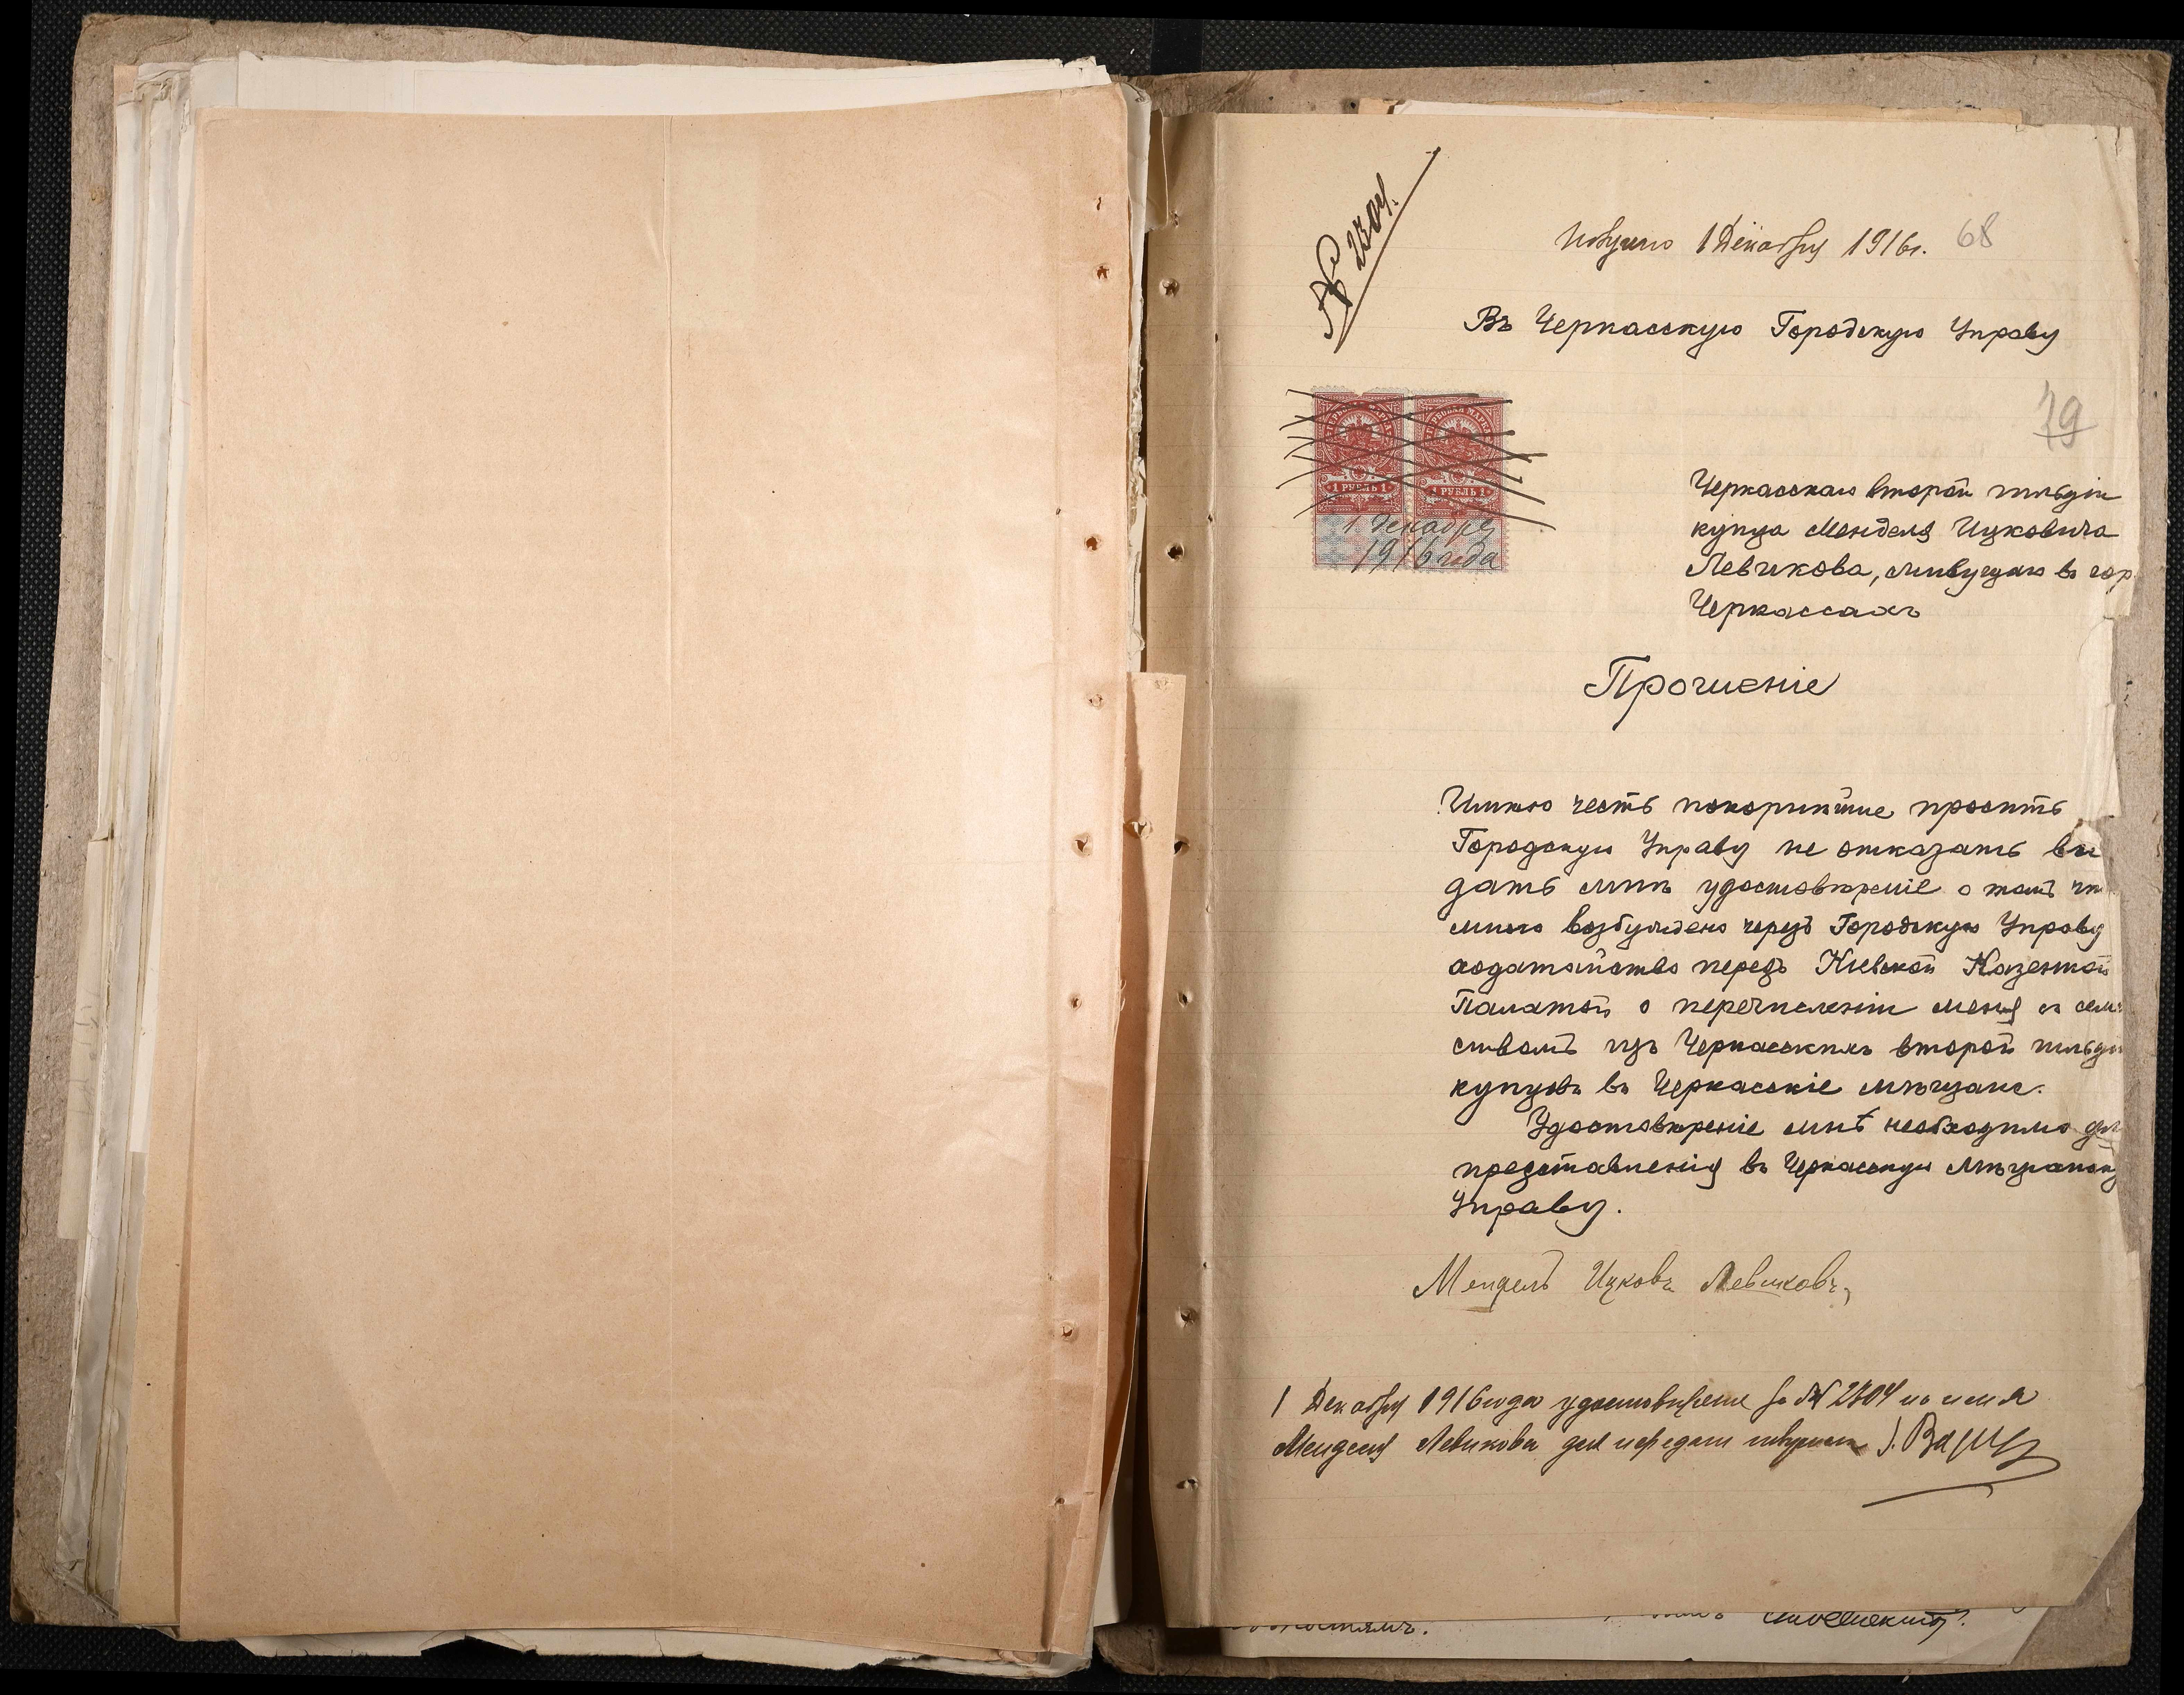 № 2304.
Получено 1 Декабря 1916 г. 68
Въ Черкасскую Городскую Управу
79
ГЕРБОВАЯ МАРКА ГЕРБОВАЯ МАРКА
1 РУБЛЬ 1 1 РУБЛЬ 1
1 декабря
1916 года
Черкасскаго второй гильдіи
купца Менделя Ицковича
Левикова, живущаго въ гор.
Черкассахъ
Прошеніе
Имѣю честь покорнѣйше просить
Городскую Управу не отказать вы
дать мнѣ удостовѣреніе о томъ что
мною возбуждено черезъ Городскую Управу
ходатайство передъ Кіевской Казенной
Палатой о перечисленіи меня съ семей
ствомъ изъ Черкасскихъ второй гильдіи
купцовъ въ Черкасскіе мѣщане.
Удостовѣреніе мнѣ необходимо для
представленія въ Черкасскую Мѣщанску
Управу.
Мендель Ицковъ Левиковъ
1 Декабря 1916 года удостовѣреніе за № 2304 на имя
Менделя Левикова для передачи получилъ